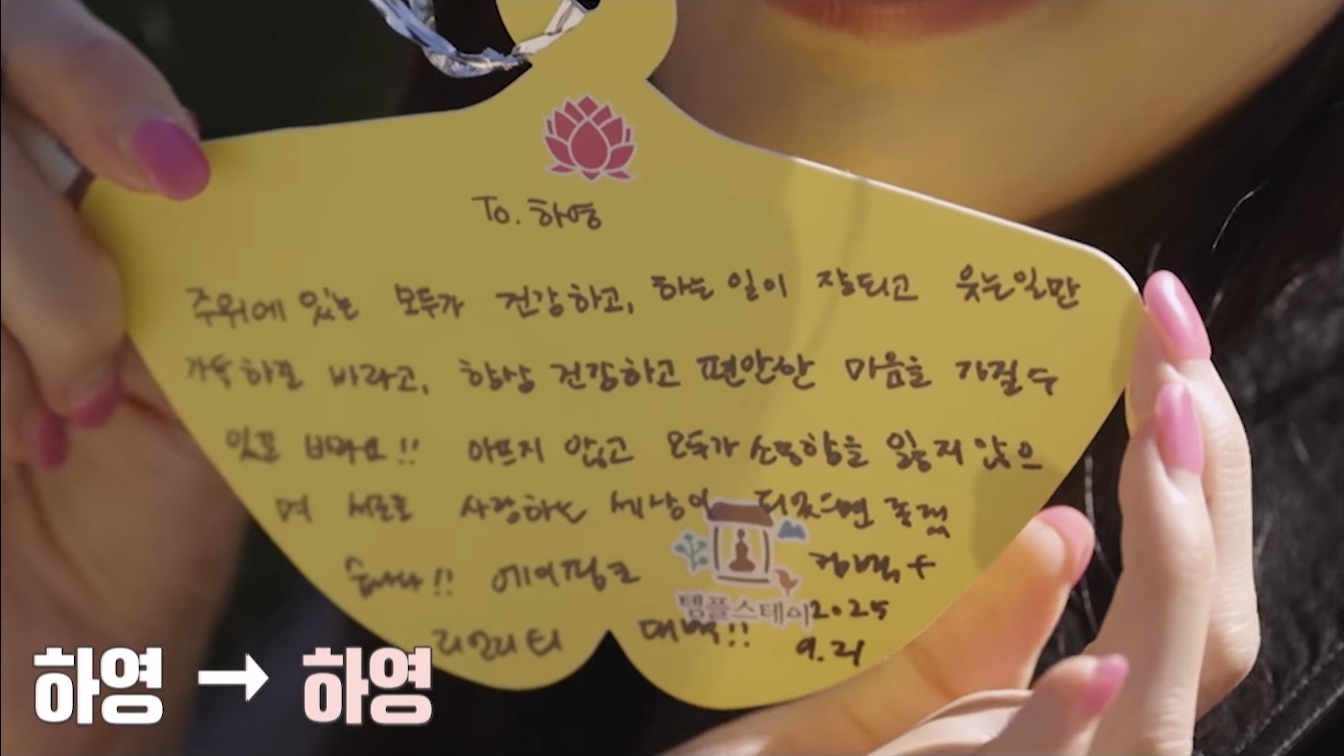 To. 하영
주위에 있는 모두가 건강하고, 하는 일이 잘되고 웃는일만
가득하길 바라고, 항상 건강하고 편안한 마음을 가질 수
있길 바라요!! 아프지 않고 모두가 소망함을 잃지 않으
며 서로를 사랑하는 세상이 되었으면 좋겠
습니다!! 에이핑크
리얼리티 대박!! 2025
9.21
템플스테이
하영 → 하영